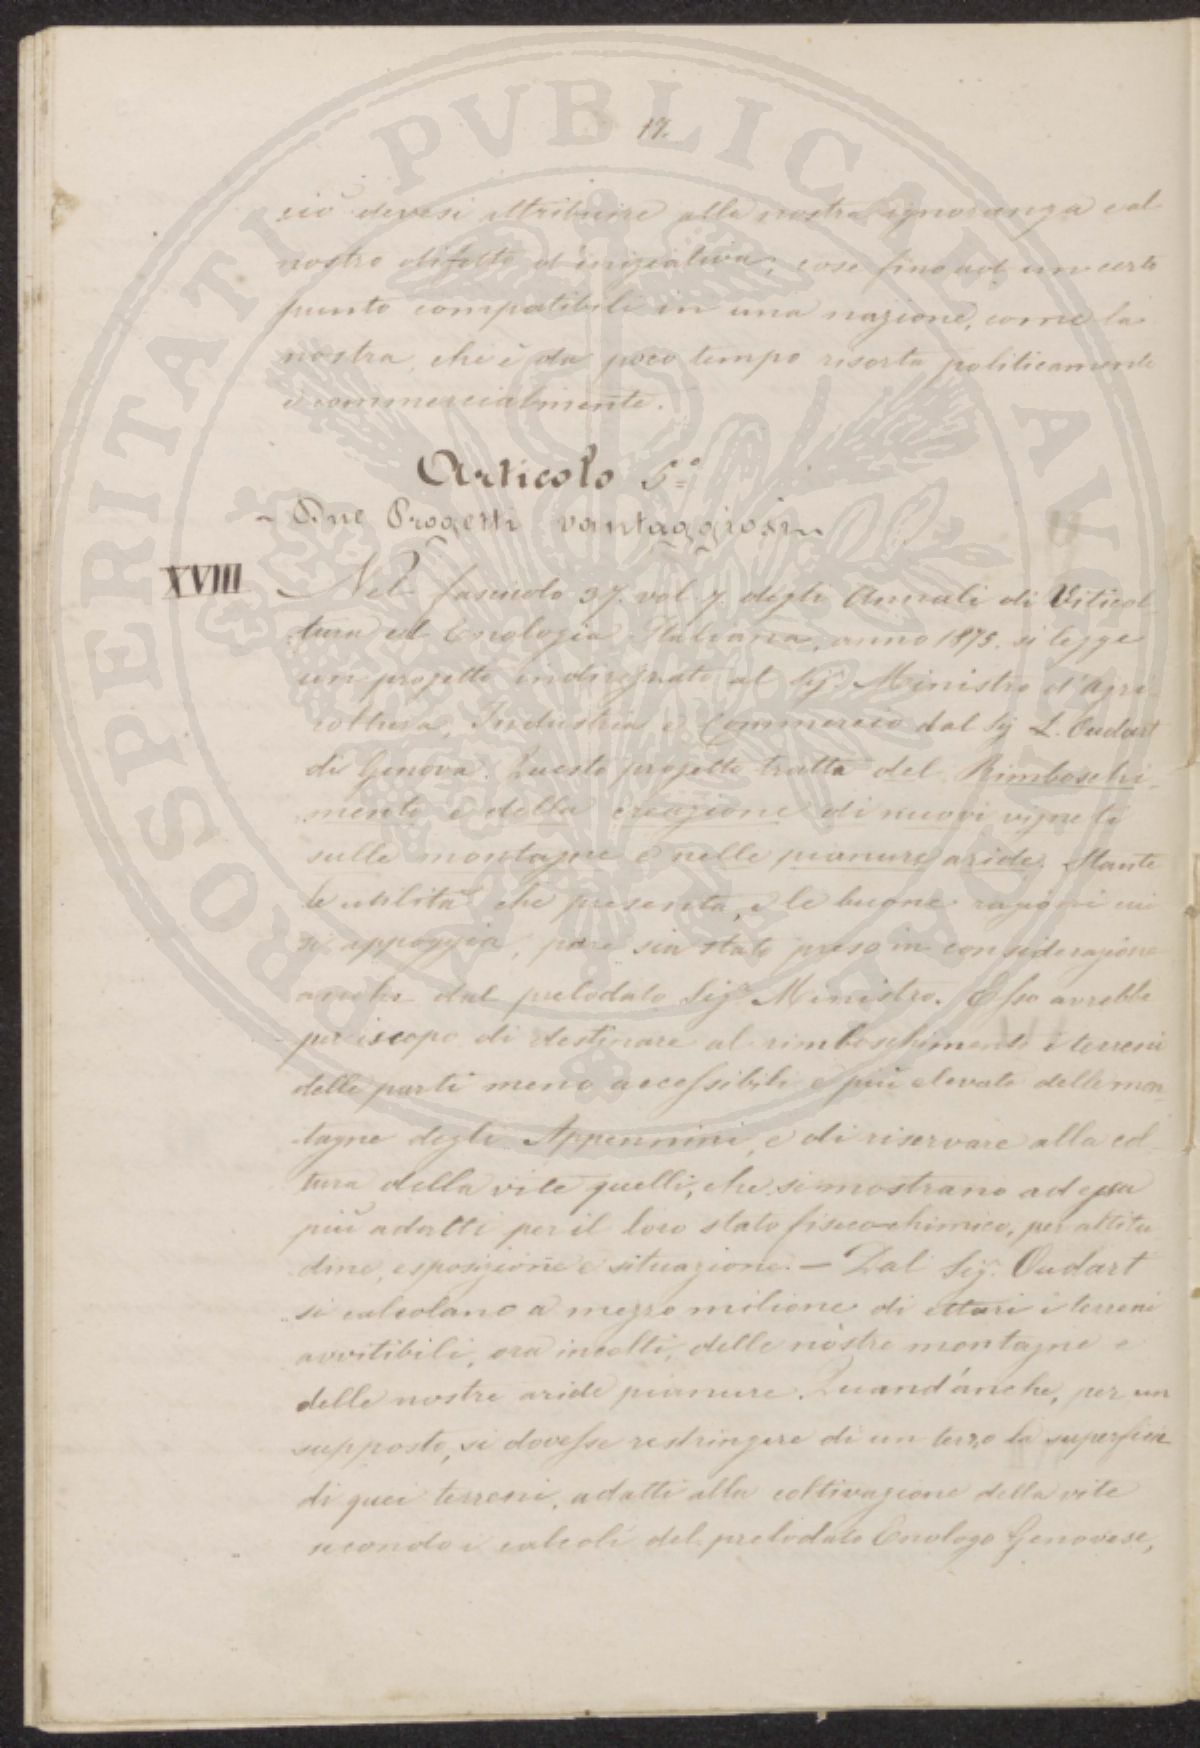 17.
ciò devesi attribuire alla nostra ignoranza e al
nostro difetto d'iniziativa; cose fino ad un certo
punto compatibili in una nazione, come la
nostra, che è da poco tempo risorta politicamente
e commercialmente.
Articolo 5°
- Due Progetti vantaggiosi -
XVIII Nel fascicolo 37. vol. 7. degli Annali di Viticol
tura ed Enologia Italiana, anno 1875. si legge
un progetto indirizzato al Sig.r Ministro d'Agri
coltura, Industria e Commercio dal Sig L. Oudart
di Genova. Questo progetto tratta del Rimboschi
mento e della creazione di nuovi vigneti
sulle montagne e nelle pianure aride. Stante
le utilità che presenta, e le buone ragioni cui
si appoggia, pare sia stato preso in considerazione
anche dal prelodato Sig.r Ministro. Esso avrebbe
per iscopo di destinare al rimboschimento i terreni
delle parti meno accessibili e più elevate delle mon
tagne degli Appennini, e di riservare alla col
tura della vite quelli, che si mostrano ad essa
più adatti per il loro stato fisico-chimico, per altitu
dine, esposizione e situazione. — Dal Sig. Oudart
si calcolano a mezzo milione di ettari i terreni
avvitibili, ora incolti, delle nostre montagne e
delle nostre aride pianure. Quand'anche, per un
supposto, si dovesse restringere di un terzo la superficie
di quei terreni, adatti alla coltivazione della vite
secondo i calcoli del prelodato Enologo Genovese,
PROSPERITATI PVBLICAE AVGENDAE